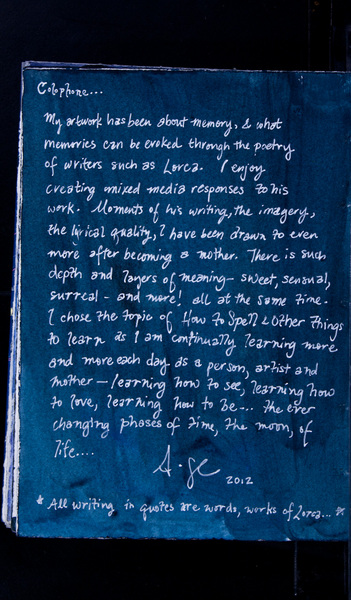 Colophone...
My artwork has been about memory, & what
memories can be evoked through the poetry
of writers such as Lorca. I enjoy
creating mixed media responses to his
work. Moments of his writing, the imagery,
the lyrical quality, I have been drawn to even
more after becoming a mother. There is such
depth and layers of meaning - sweet, sensual,
surreal - and more! all at the same time.
I chose the topic of How to Spell & Other Things
to learn as I am continually learning more
and more each day as a person, artist and
mother - learning how to see, learning how
to love, learning how to be... the ever
changing phases of time, the moon, of
life....
2012
* All writing in quotes are words, works of Lorca... *